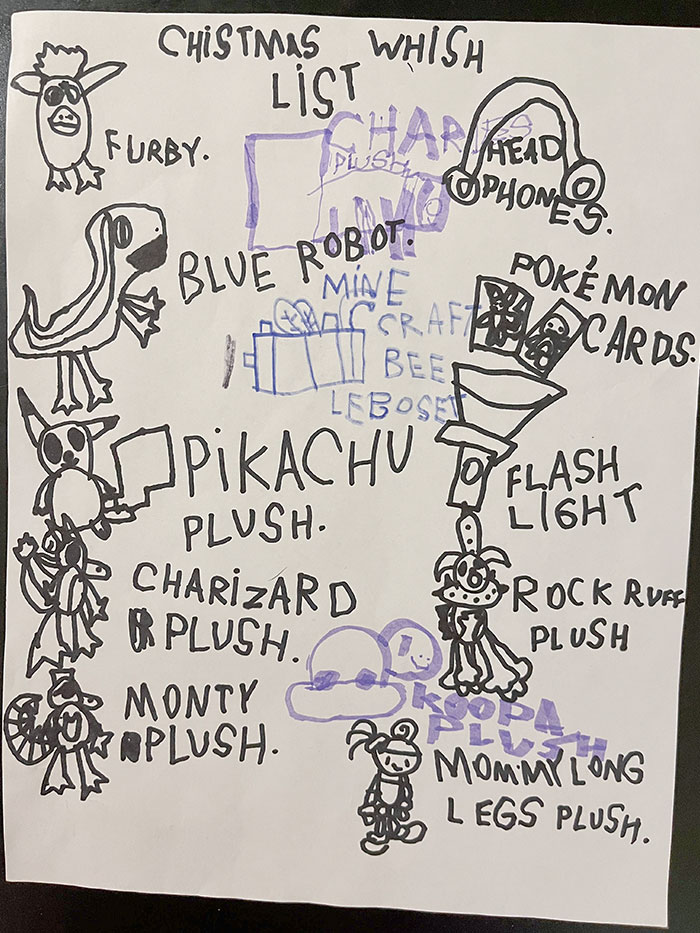 CHISTMAS WHISH
LIST
FURBY.
HEAD
PHONES.
PLUSH
BLUE ROBOT.
MINE
CRAFT
BEE
LEBOSET
POKÉMON
CARDS.
PIKACHU
PLUSH.
FLASH
LIGHT
CHARIZARD
PLUSH.
ROCK RUFF
PLUSH
MONTY
PLUSH.
KOOPA
PLUSH
MOMMY LONG
LEGS PLUSH.